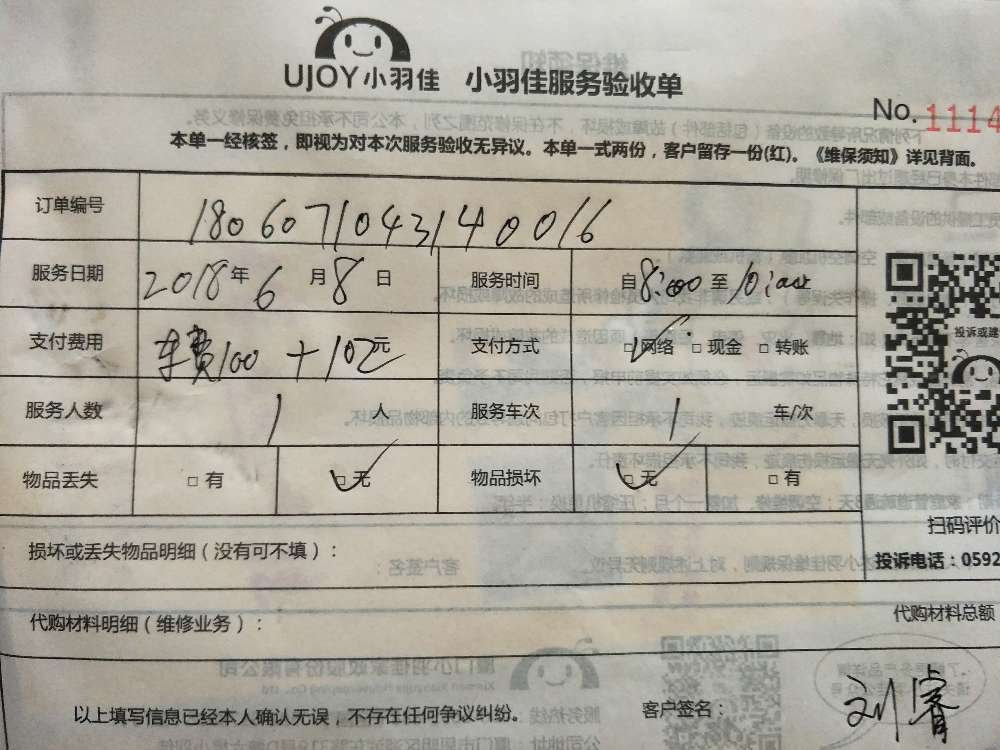 UJOY小羽佳 小羽佳服务验收单
No. 1114
本单一经核签，即视为对本次服务验收无异议。本单一式两份，客户留存一份(红)。《维保须知》详见背面。
订单编号 1806071043140016
服务日期 2018年6月8日 服务时间 自8:00至10:00
支付费用 车费100+102元 支付方式 □网络 □现金 □转账
服务人数 1人 服务车次 1车/次
物品丢失 □有 □无 物品损坏 □无 □有
投诉或建
扫码评价
投诉电话：0592
损坏或丢失物品明细（没有可不填）：
代购材料明细（维修业务）： 代购材料总额
以上填写信息已经本人确认无误，不存在任何争议纠纷。 客户签名：刘睿